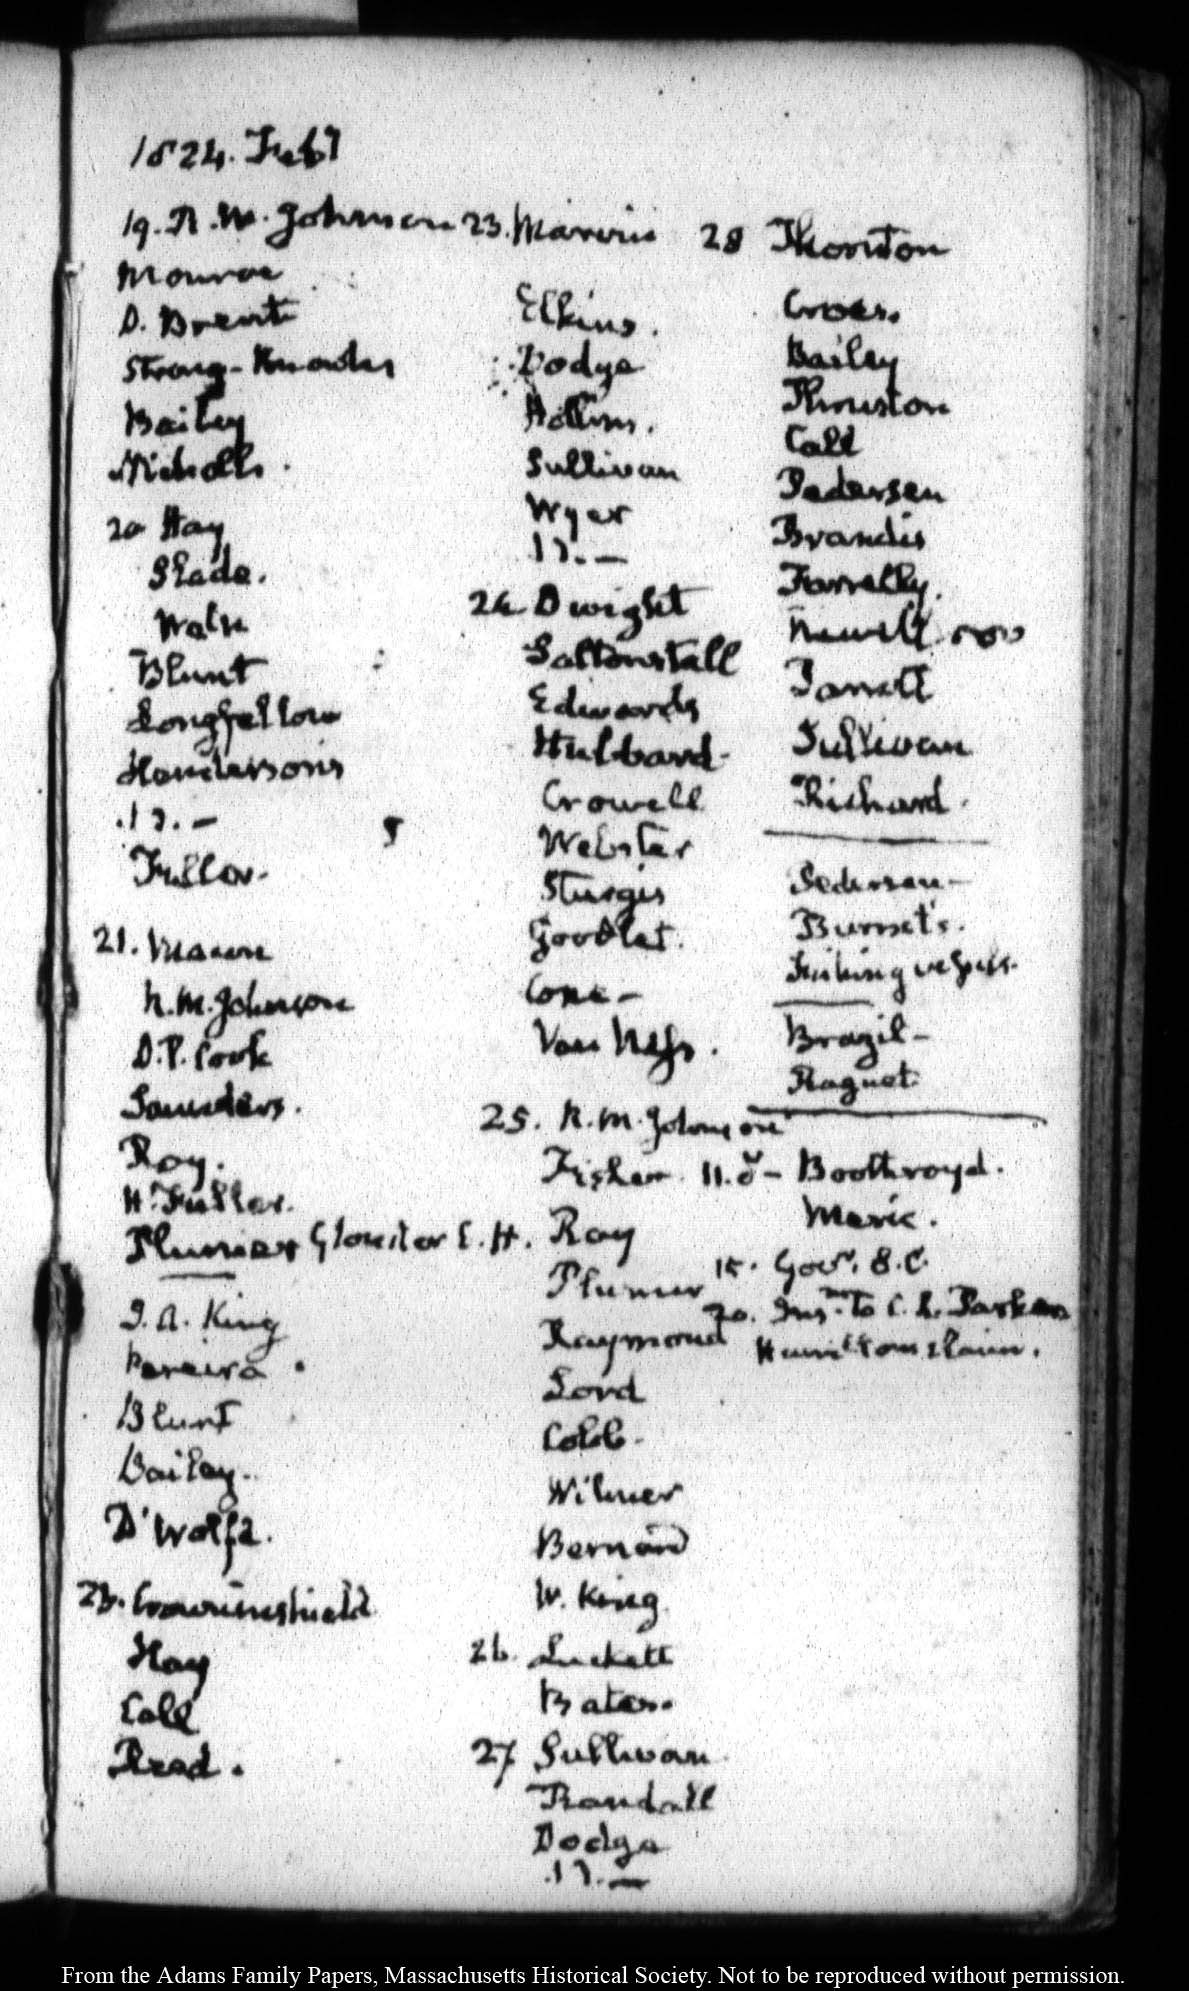 1824. Feby
19. R. M. Johnson
Monroe
D. Brent
Strong - Knowles
Bailey
Nicholls.
20 Hay
Slade.
Blunt
Longfellow
Hendersons
.17.—
Fuller.
21.
R. M. Johnson
D. P. Cook
Saunders.
Roy.
H. Fuller.
Plumer Gloucester C. H.
J. A. King
Pereira.
Blunt
Bailey.
D'Wolfe.
23. Crowninshield
Hay
Call
Read.
23.
Elkins.
Dodge
Hollins.
Sullivan
Wyer
.17.—
24 Dwight
Saltonstall
Edwards
Hubbard-
Crowell
Webster
Sturgis
Goodlet.
Cone-
Van Ness.
25. R. M. Johnson
Fisher
Ray
Plumer
Raymond
Lord
Cobb.
Wilmer
Bernard
W. King
26. Luckett
Bates.
27 Sullivan
Randall
Dodge
.17.—
28 Thornton
Cross.
Bailey
Thruston
Call
Pedersen
Brandis
Farrelly.
Newell
Jarrett
Sullivan
Richard.
Pedersen-
Burnet's.
Fishing vessels.
Brazil-
Raguet.
Boothroyd.
15. Govr. S. C.
20. Insns. to C. R. Parker
Hamilton's claim.
From the Adams Family Papers, Massachusetts Historical Society. Not to be reproduced without permission.